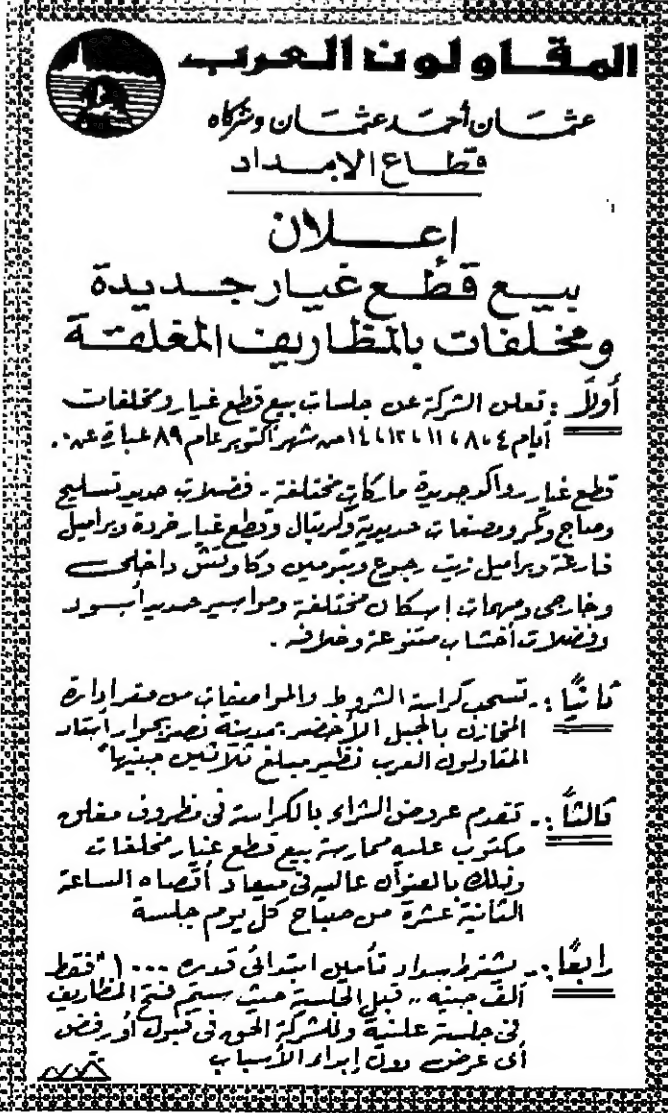 المقاولون العرب
عثمان أحمد عثمان وشركاه
قطاع الامداد
إعلان
بيع قطع غيار جديدة
ومخلفات بالمظاريف المغلقة
أولاً : تعلن الشركة عن جلسات بيع قطع غيار ومخلفات
أيام ٤، ٨، ١١، ١٢، ١٤ من شهر أكتوبر عام ٨٩ عبارة عن .
قطع غيار رواكد جديدة ماركات مختلفة - فضلات حديد تسليح
وصاج وكمر ومصنعات حديدية وكريتال وقطع غيار خردة وبراميل
فارغة وبراميل زيت رجوع وبتومين وكاوتش داخلى
وخارجى ومهمات إسكان مختلفة ومواسير حديد أسود
وفضلات أخشاب متنوعة وخلافه .
ثانياً : - تسحب كراسة الشروط والمواصفات من مقر إدارة
المخازن بالجبل الأخضر بمدينة نصر بجوار استاد
المقاولون العرب نظير مبلغ ثلاثين جنيهاً
ثالثاً : - تقدم عروض الشراء بالكراسة فى مظروف مغلق
مكتوب عليه ممارسة بيع قطع غيار مخلفات
وذلك بالعنوان عاليه فى ميعاد أقصاه الساعة
الثانية عشرة من صباح كل يوم جلسة
رابعاً : - يشترط سداد تأمين ابتدائى قدره ١٠٠٠ " فقط
ألف جنيه .. قبل الجلسة حيث سيتم فتح المظاريف
فى جلسة علنية وللشركة الحق فى قبول أو رفض
أى عرض دون إبداء الأسباب